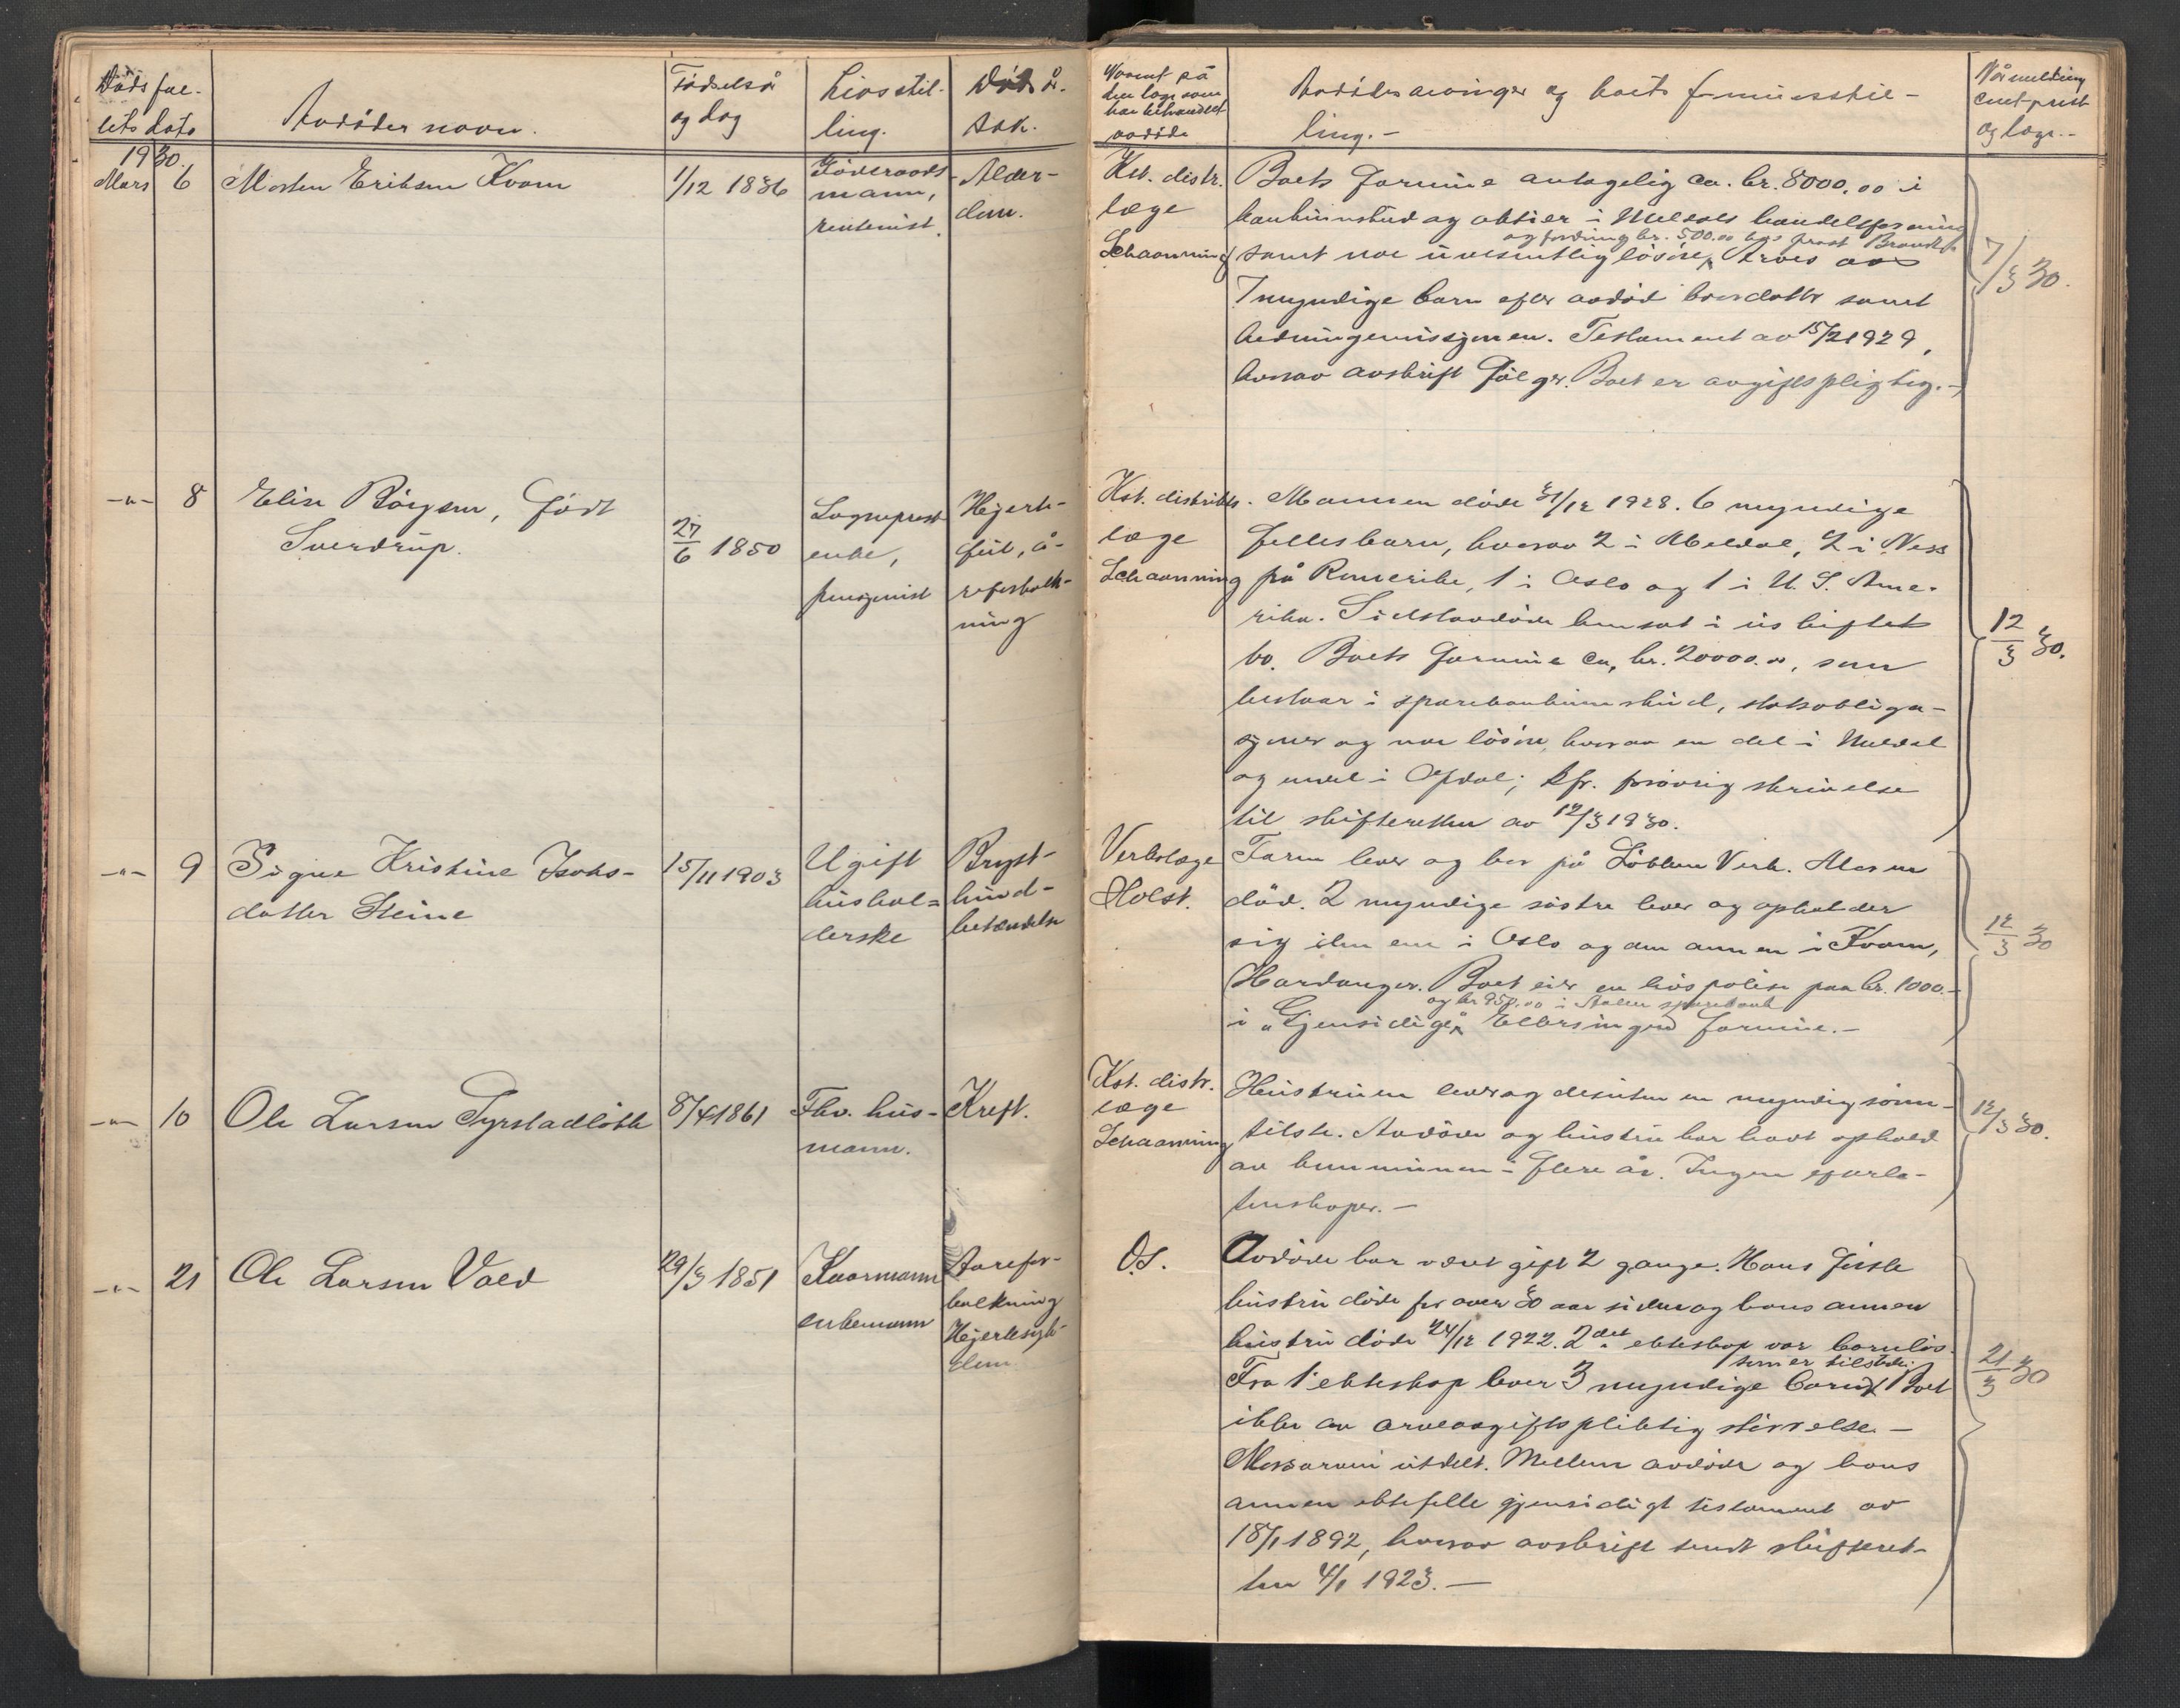 Dødsfal-
lets dato
Avdødes navn.
Fødselsår
og dag
Livsstil-
ling.
Døds år-
sak.
Navnet på
den læge som
har behandlet
avdøde
Avdødes arvinger og boets formuesstil-
ling.-
Når melding
sendt prest
og læge.-
1930.
Mars 6
Morten Eriksen Kvam
1/12 1836
Föderaads-
mann,
rentenist.
Alder-
dom.
Kst. distr.
læge
Schaanning
Boets formue antagelig ca. kr. 8000.00 i
bankinnskud og aktier i Meldals handelsforening
og fordring kr. 500.00 hos prost Brandt
samt noe uvesentlig løsøre, Arves av
7 myndige barn efter avdød brordatter samt
hedningemissjonen. Testament av 15/2 1929,
hvorav avskrift følger. Boet er avgiftspligtig.-
7/3 30.
-"- 8
Elise Böigsen, født
Sverdrup.
27/6 1850
Sogneprest
enke,
pensjonist
Hjerte-
feil, å-
reforkalk-
ning
Kst. distrikts-
læge
Schaanning
Mannen døde 31/12 1928. 6 myndige
fellesbarn, hvorav 2 i Meldal, 2 i Ness
på Romerike, 1 i Oslo og 1 i U. S. Ame-
rika. Sidstavdøde hensat i uskiftet
bo. Boets formue ca. kr. 20000.00, som
bestaar i sparebankinnskud, statsobliga-
sjoner og noe løsøre, hvorav en del i Meldal
og en del i Opdal; kfr. forøvrig skrivelse
til skifteretten av 12/3 1930.
12/3 30.
-"- 9
Signe Kristine Isaks-
datter Steine
15/11 1903
Ugift
hushol-
derske
Bryst-
hind-
betændelse
Verkslæge
Holst.
Faren lever og bor på Løkken Verk. Moren
død. 2 myndige søstre lever og opholder
sig den ene i Oslo og den annen i Kvam,
Hardanger. Boet eier en livspolise paa kr. 1000.-
og kr 950.00 i sparebank
i "Gjensidige". Ellers ingen formue.-
12/3 30
-"- 10
Ole Larsen Syrstadløkk
8/4 1861
Fhv. hus-
mann.
Kreft.
Kst. distr.
læge
Schaanning
Hustruen lever og desuten en myndig sønn-
tilste. Avdøde og hustru har havt ophold
av kommunen i flere år. Ingen efterla-
tenskaper.-
12/3 30.
-"- 21
Ole Larsen Vold
29/3 1851
Kaarmann
enkemann
Aarefor-
kalkning
Hjertesyk-
dom
O.S.
Avdøde har vært gift 2 gange. Hans første
hustru døde for over 30 aar siden og hans annen
hustru døde 24/12 1922. 2det ekteskap var barnløs.
som er tilstede.
Fra 1 ekteskap lever 3 myndige barn. Boet
ikke av arveavgiftspliktig størrelse.-
Morsarven utdelt. Mellem avdøde og hans
annen ektefelle gjensidigt testament av
18/1 1892, hvorav avskrift sendt skifteret-
ten 4/1 1923.-
21/3 30